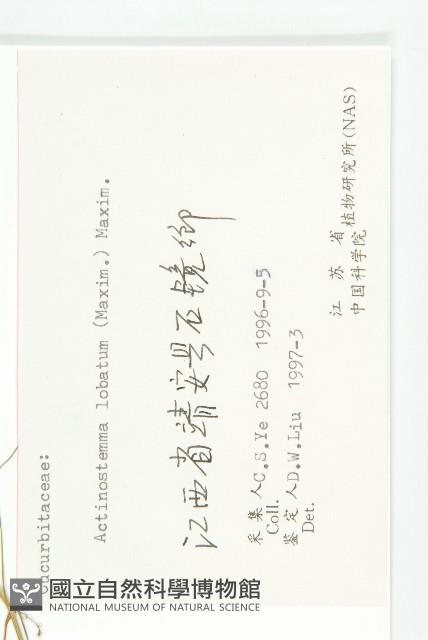 Cucurbitaceae:
Actinostemma lobatum (Maxim.) Maxim.
江西省靖安县石镜鄉
采集人 C.S.Ye 2680 1996-9-5
Coll.
鉴定人 D.W.Liu 1997-3
Det.
江苏省植物研究所(NAS)
中国科学院
國立自然科學博物館
NATIONAL MUSEUM OF NATURAL SCIENCE